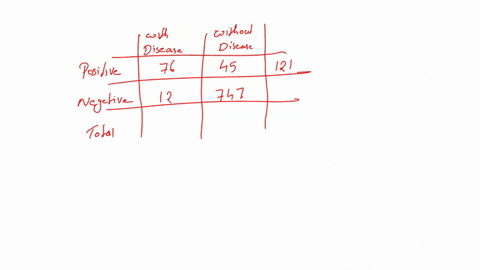 with Disease without Disease
Positive 76 45 121
Negative 12 747
Total